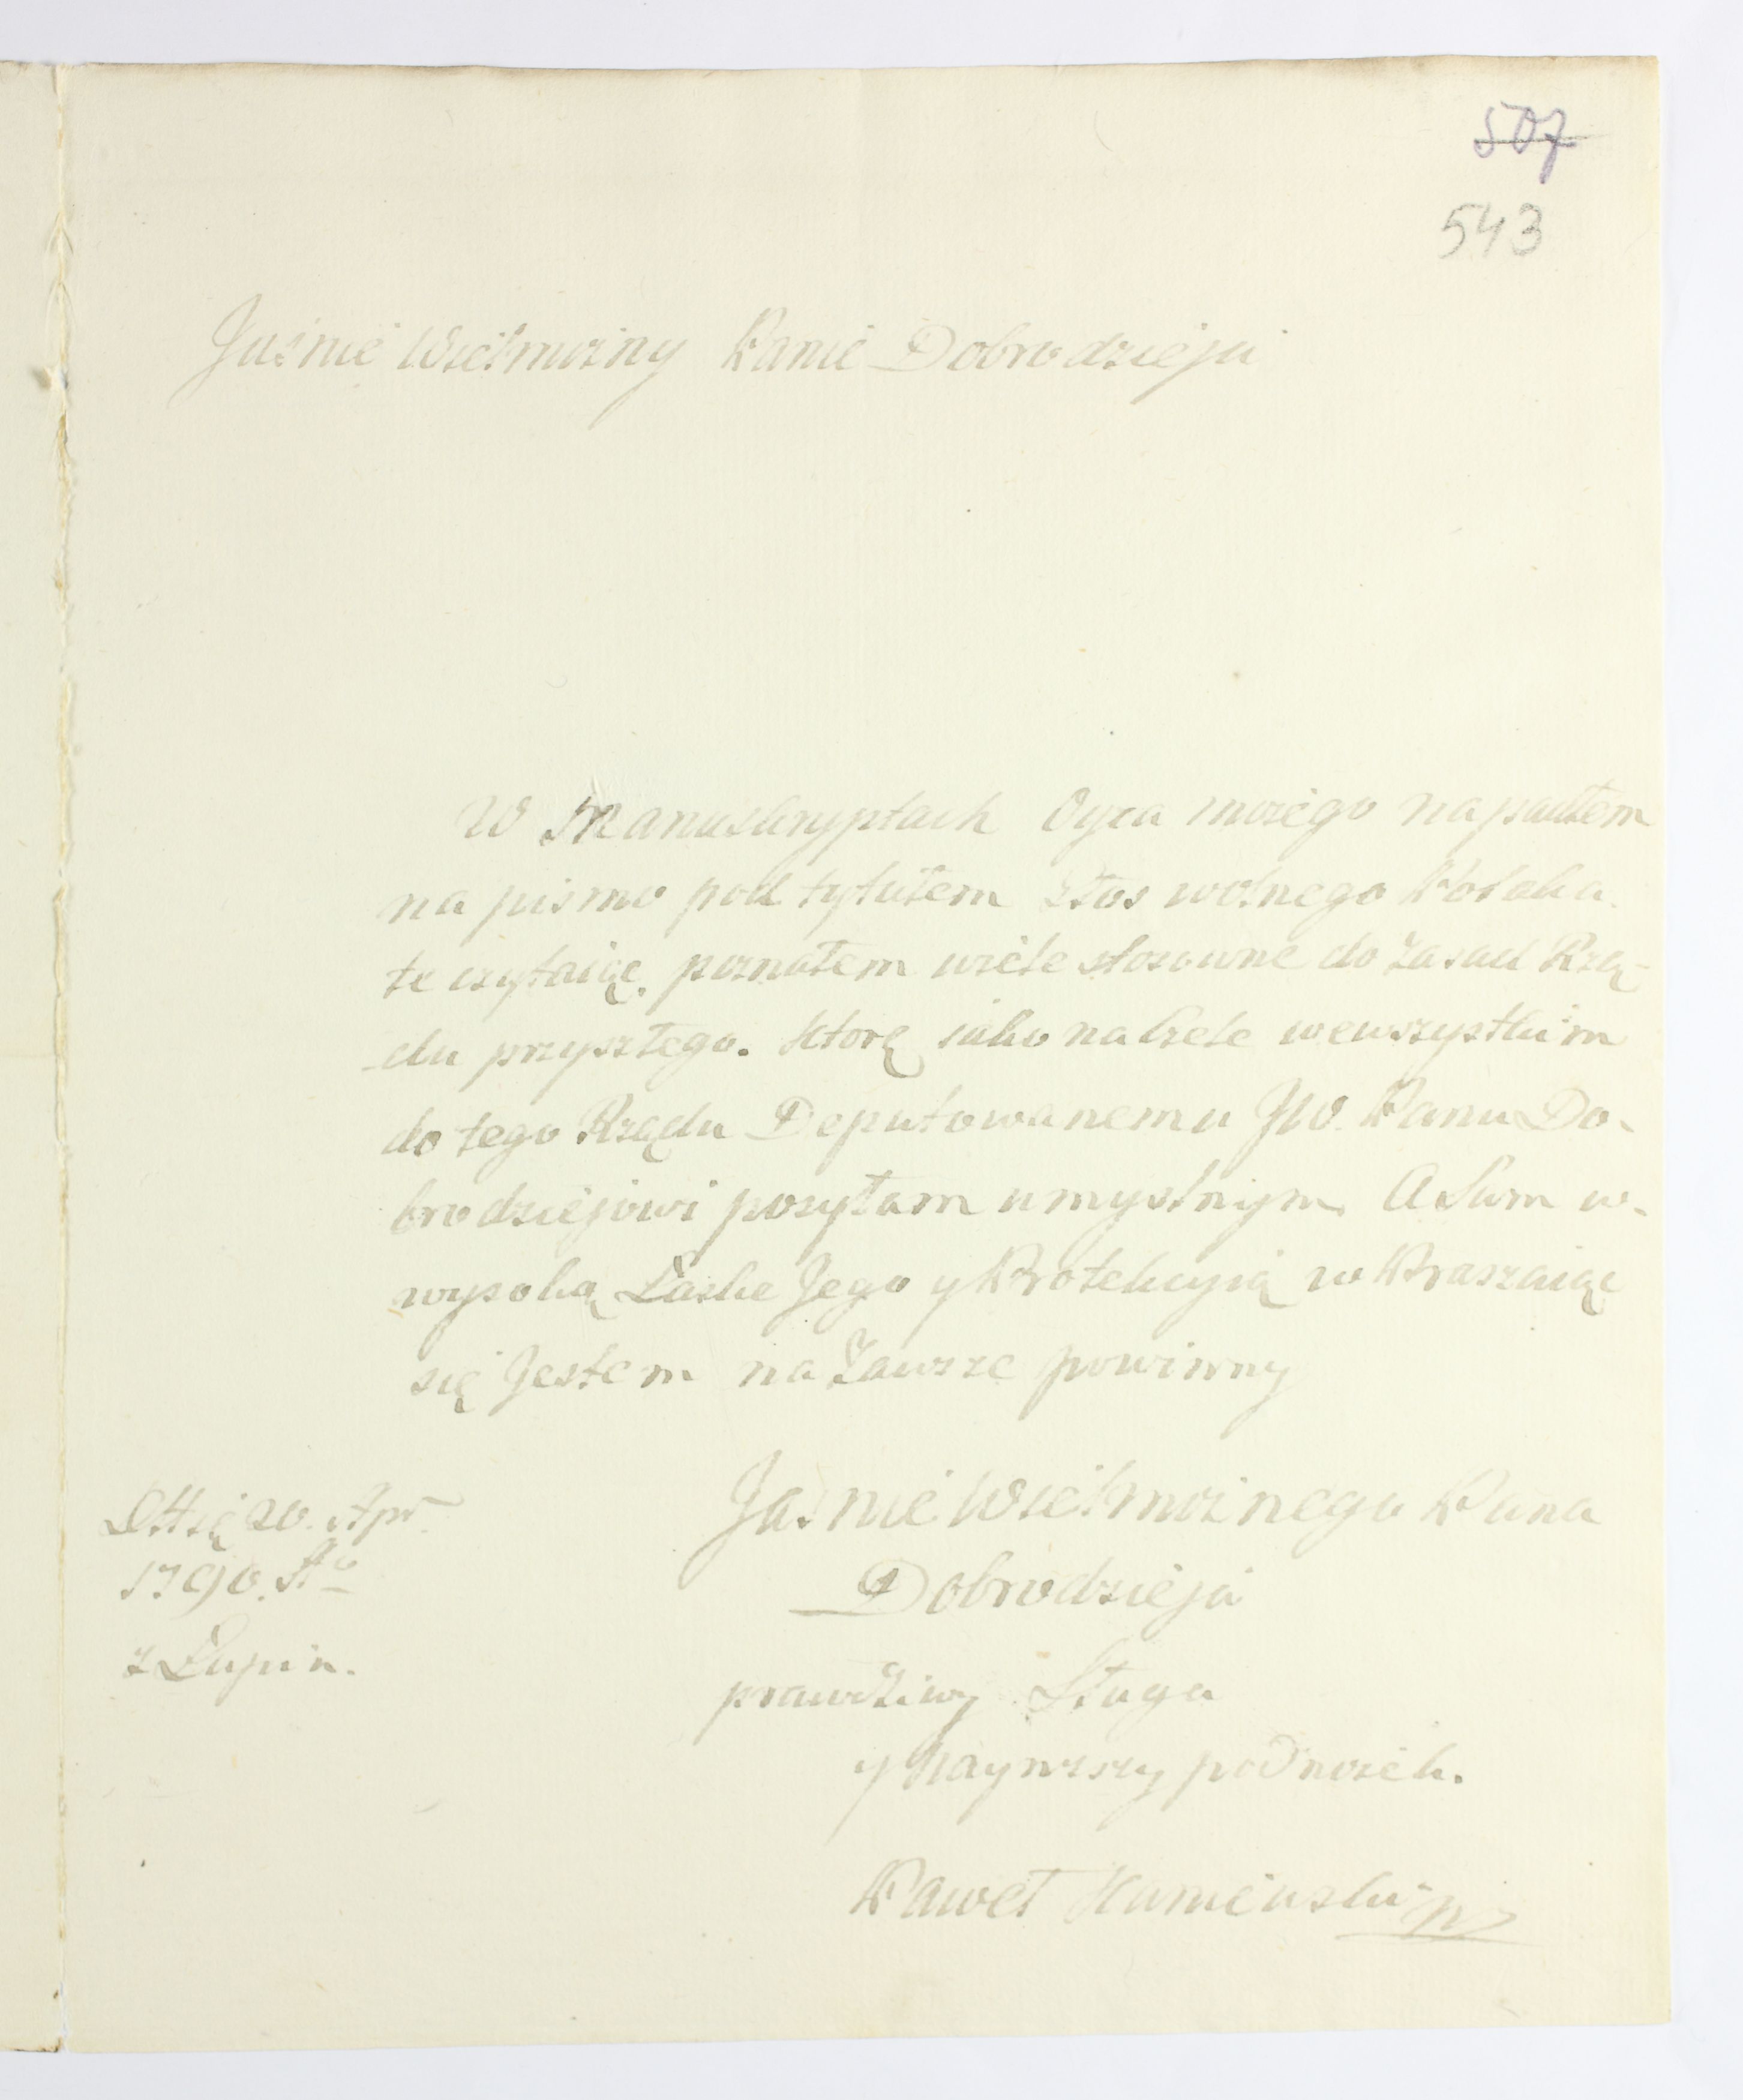 507
543
Jaśnie Wielmożny Panie Dobrodzieju
W Manuskryptach Oyca moiego napadłem
na pismo pod tytułem Głos wolnego Polaka.
te czytaiąc, poznałem wiele stosowne do Zasad Rzą-
-du przyszłego. Którą iako należe wewszystkim
do tego Rządu Deputowanemu JW. Panu Do-
brodziejowi posyłam umyslnym. A Sam w-
wysoką Łaske Jego y Protekcyią w Praszaiąc
się Jestem na Zawsze powinny
Jaśnie Wielmożnego Pana
Dobrodzieja
prawdziwy Sługa
y Nayniższy podnożek.
Paweł Kamieński
20. Apr
1790. Ao
z Łupin.